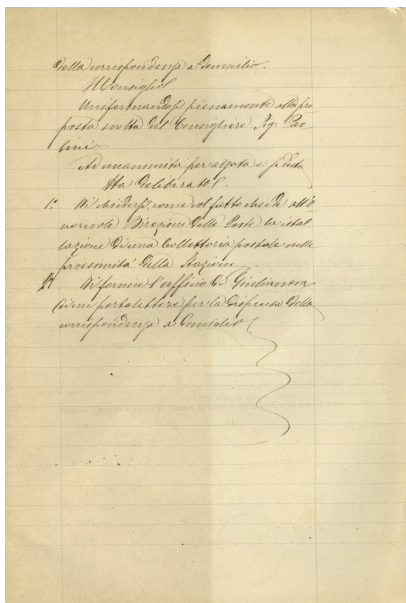 della corrispondenza a Domicilio.
Il Consiglio
Uniformandosi pienamente alla pro
posta svolta dal Consigliere Sig: Pao
lini
Ad unanimità per alzata e seduta
Ha deliberato
1° Di chiedersi come col fatto chiede all'O
norevole Direzione delle Poste la istal
lazione di una Collettoria postale nelle
prossimità della Stazione
2° Di fornire l'uffizio di Giulianova
di un portalettere per la dispensa della
corrispondenza a Domicilio